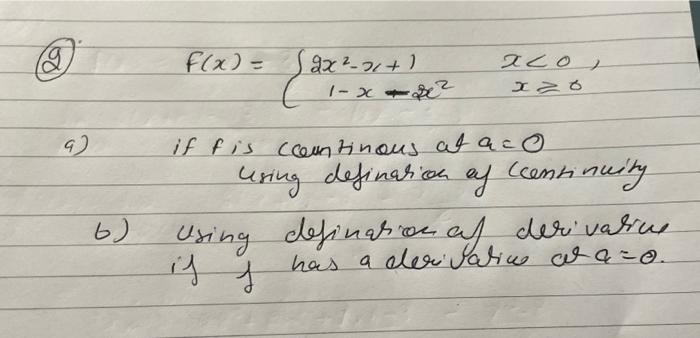 2)
f(x) = { 2x² - x + 1 x < 0 ,
1 - x - x² x ≥ 0
a) if f is ccontinous at a = 0
using defination of ccontinuity
b) using defination of derivative
if f has a derivative at a = 0.